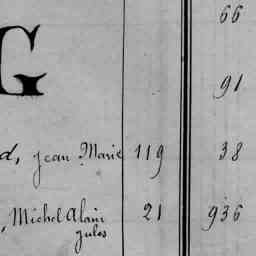 66
G
91
d, Jean Marie 119 38
, Michel Alain 21 936
Jules